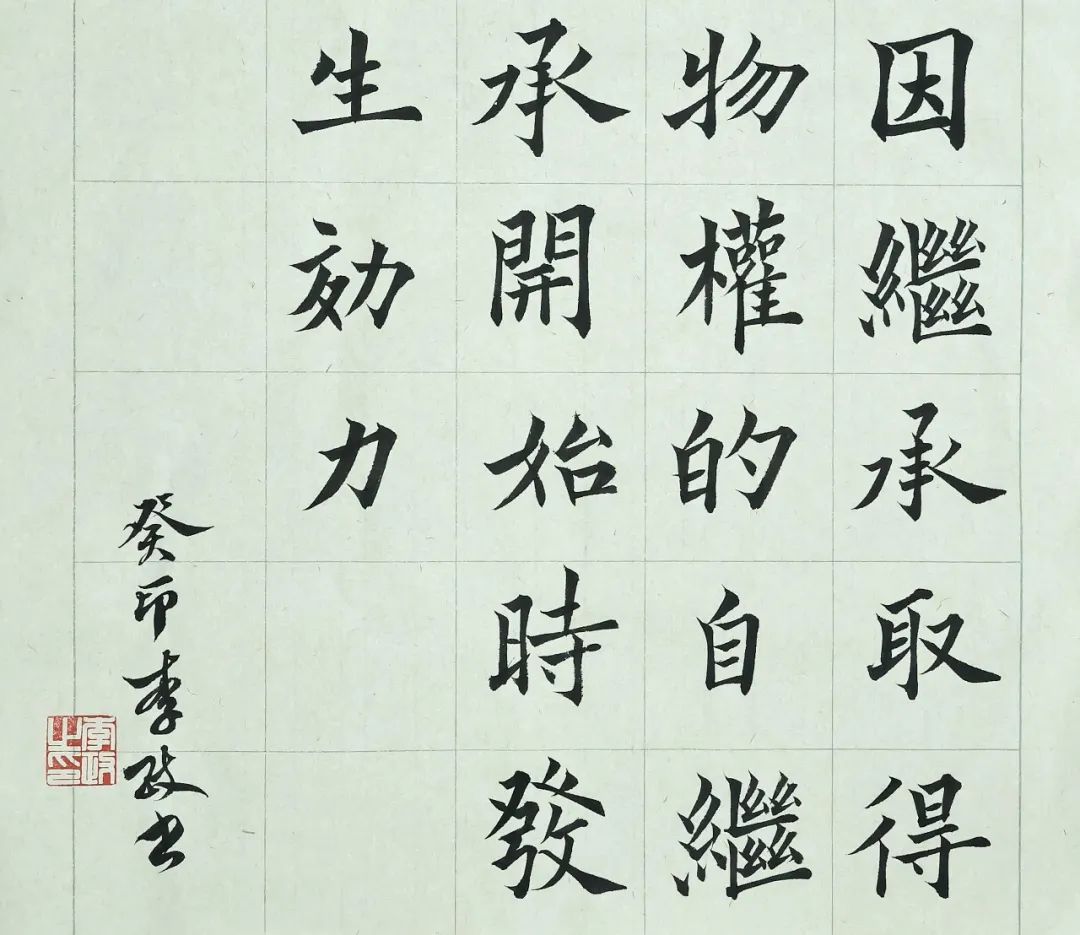 因繼承取得
物權的自繼
承開始時發
生効力
癸卯李政书
李政之印